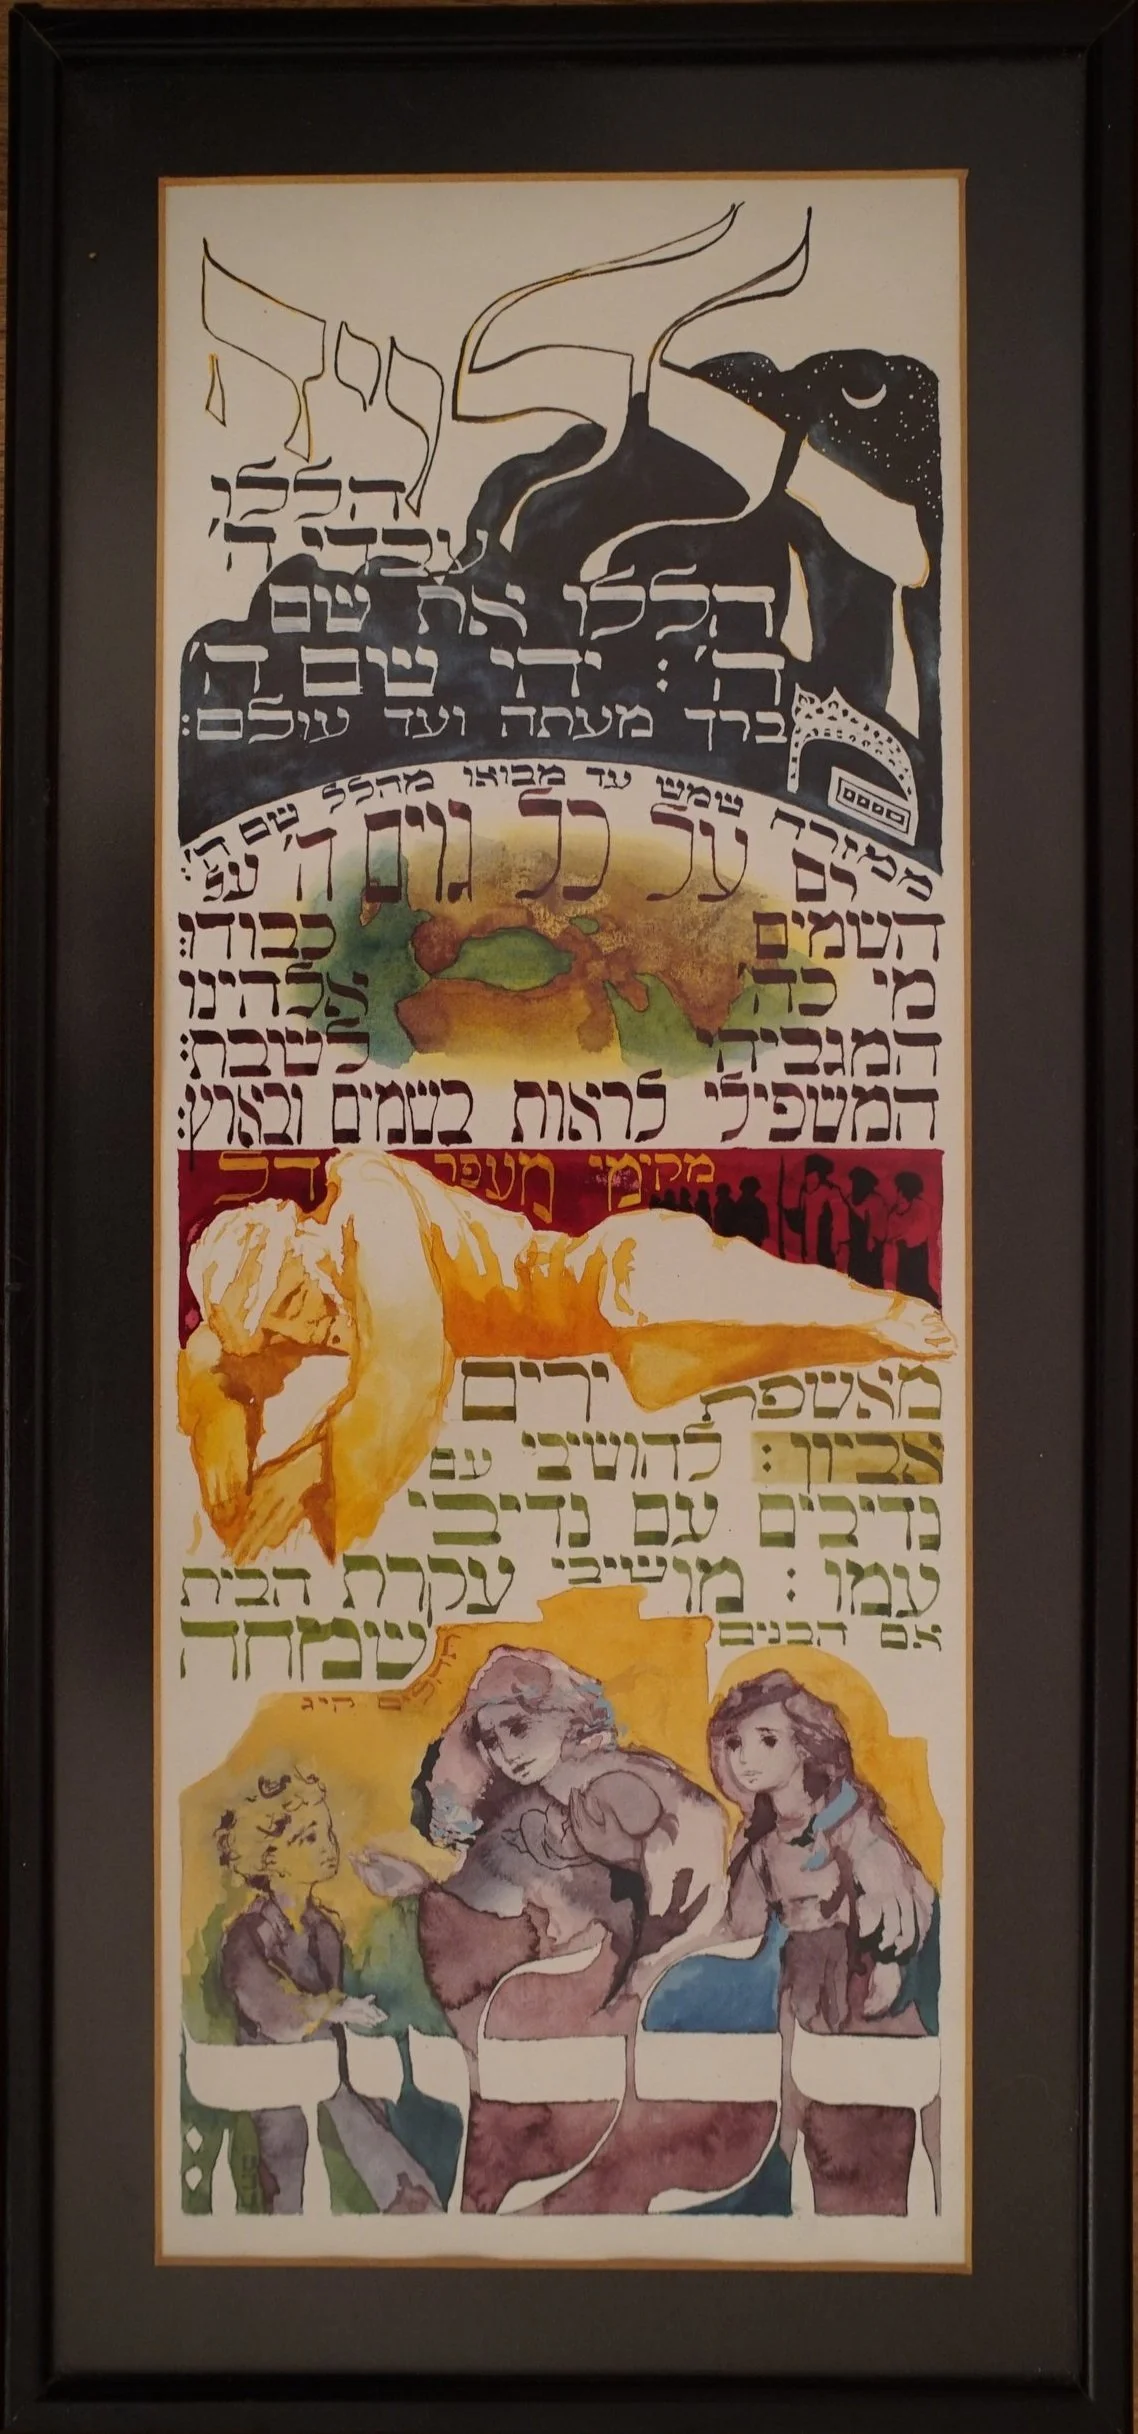 הללויה
הללו
עבדי ה'
הללו את שם
ה': יהי שם ה'
ברך מעתה ועד עולם:
ממזרח שמש עד מבואו מהלל שם ה':
רם על כל גוים ה' על
השמים כבודו:
מי כה' אלהינו
המגביהי לשבת:
המשפילי לראות בשמים ובארץ:
מקימי מעפר דל
מאשפת ירים
אביון: להושיבי עם
נדיבים עם נדיבי
עמו: מושיבי עקרת הבית
אם הבנים שמחה
תהלים קיג
הללויה: